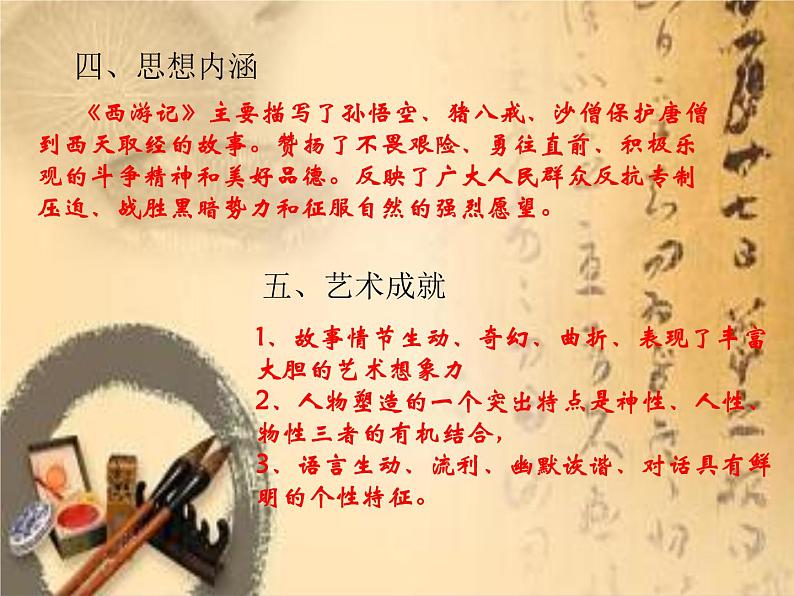 四、思想内涵
《西游记》主要描写了孙悟空、猪八戒、沙僧保护唐僧
到西天取经的故事。赞扬了不畏艰险、勇往直前、积极乐
观的斗争精神和美好品德。反映了广大人民群众反抗专制
压迫、战胜黑暗势力和征服自然的强烈愿望。
五、艺术成就
1、故事情节生动、奇幻、曲折、表现了丰富
大胆的艺术想象力
2、人物塑造的一个突出特点是神性、人性、
物性三者的有机结合，
3、语言生动、流利、幽默诙谐、对话具有鲜
明的个性特征。